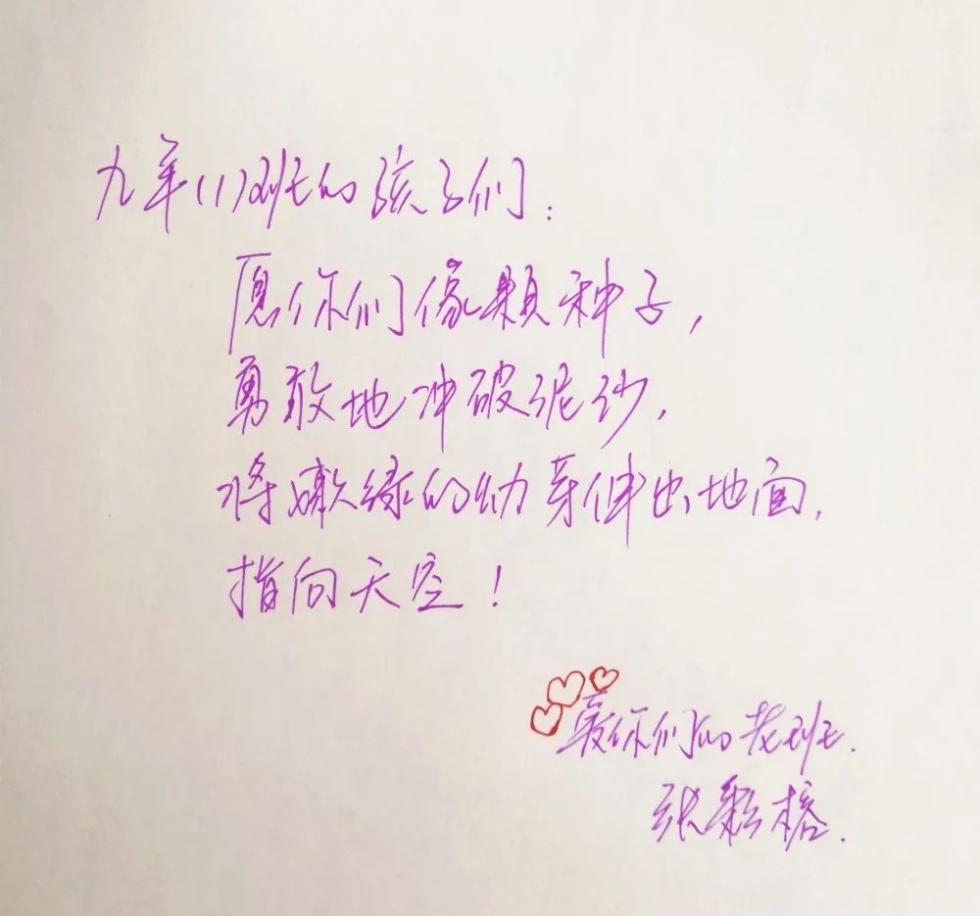 九年(1)班的孩子们:
愿你们像颗种子,
勇敢地冲破泥沙,
将嫩绿的幼芽伸出地面,
指向天空!
爱你们的老班.
张彩榕.